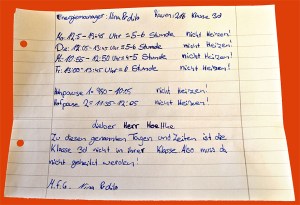 Energiemanager: Nina Raum: 218 Klasse 3d
Mo: 12:5 - 13:45 Uhr = 5-6 Stunde nicht Heizen!
Do: 12:05 - 13:45 Uhr = 5-6 Stunde nicht Heizen!
Mi: 10:55 - 12:50 Uhr = 4-5 Stunde nicht Heizen!
Fr: 13:00 - 13:45 Uhr = 6 Stunde nicht Heizen!
Hofpause 1 = 10:05 nicht Heizen!
Hofpause 2 = 11:35 - 12:05 nicht Heizen!
Lieber Herr
Zu diesen genannten Tagen und Zeiten ist die
Klasse 3d nicht in ihrer Klasse. Also muss da
nicht geheitzt werden!
M.f.G. Nina